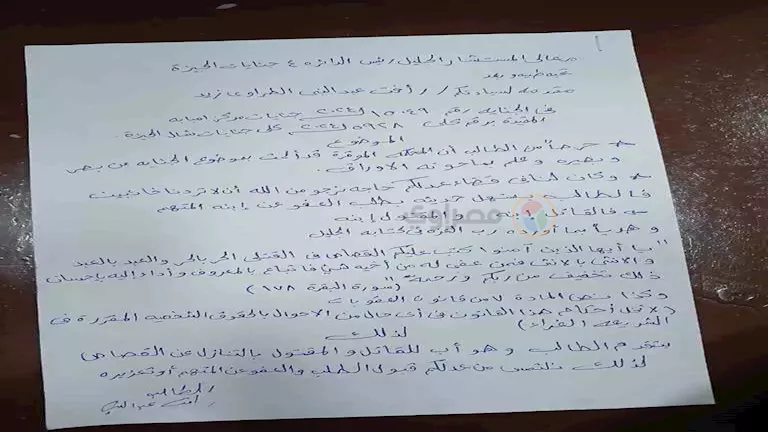 معالى المستشار الجليل رئيس الدائرة ٤ جنايات الجيزة
تحية طيبة وبعد
مقدمه لسيادتكم / رأفت عبد النبى الطراوى زيد
فى الجناية رقم ١٥٠٤٩ / ٢٠٢٤ جنايات مركز امبابه
المقيدة برقم كلى ٥٩٢٨ / ٢٠٢٤ كلى جنايات شمال الجيزة.
الموضوع
حرصاً من الطالب أن المحكمة الموقرة قد ألمت بموضوع الجناية عن بصر
وبصيره وعلم بما حوته الاوراق.
وكان لنا فى قضاء عدلكم حاجه نرجو من الله أن لا تردنا خائبين
فالطالب يستهل حديثه بطلب العفو عن إبنه المتهم
فالقاتل إبنه والمقتول إبنه
وهدياً بما أورده رب العزة فى كتابه الجليل
"يا أيها الذين آمنوا كتب عليكم القصاص فى القتلى الحر بالحر والعبد بالعبد
والانثى بالانثى فمن عفى له من أخيه شئ فاتباع بالمعروف وأداء إليه بإحسان
ذلك تخفيف من ربكم ورحمة" (سورة البقرة ١٧٨)
وكذا نص المادة ٧ من قانون العقوبات
(لا تخل أحكام هذا القانون فى أى حال من الاحوال بالحقوق الشخصية المقررة فى
الشريعة الغراء)
لذلك
يتقدم الطالب وهو أب للقاتل والمقتول بالتنازل عن القصاص
لذلك نلتمس من عدلكم قبول الطلب والعفو عن المتهم أو تعزيره
الطالب
رأفت عبد النبى
مصراوى